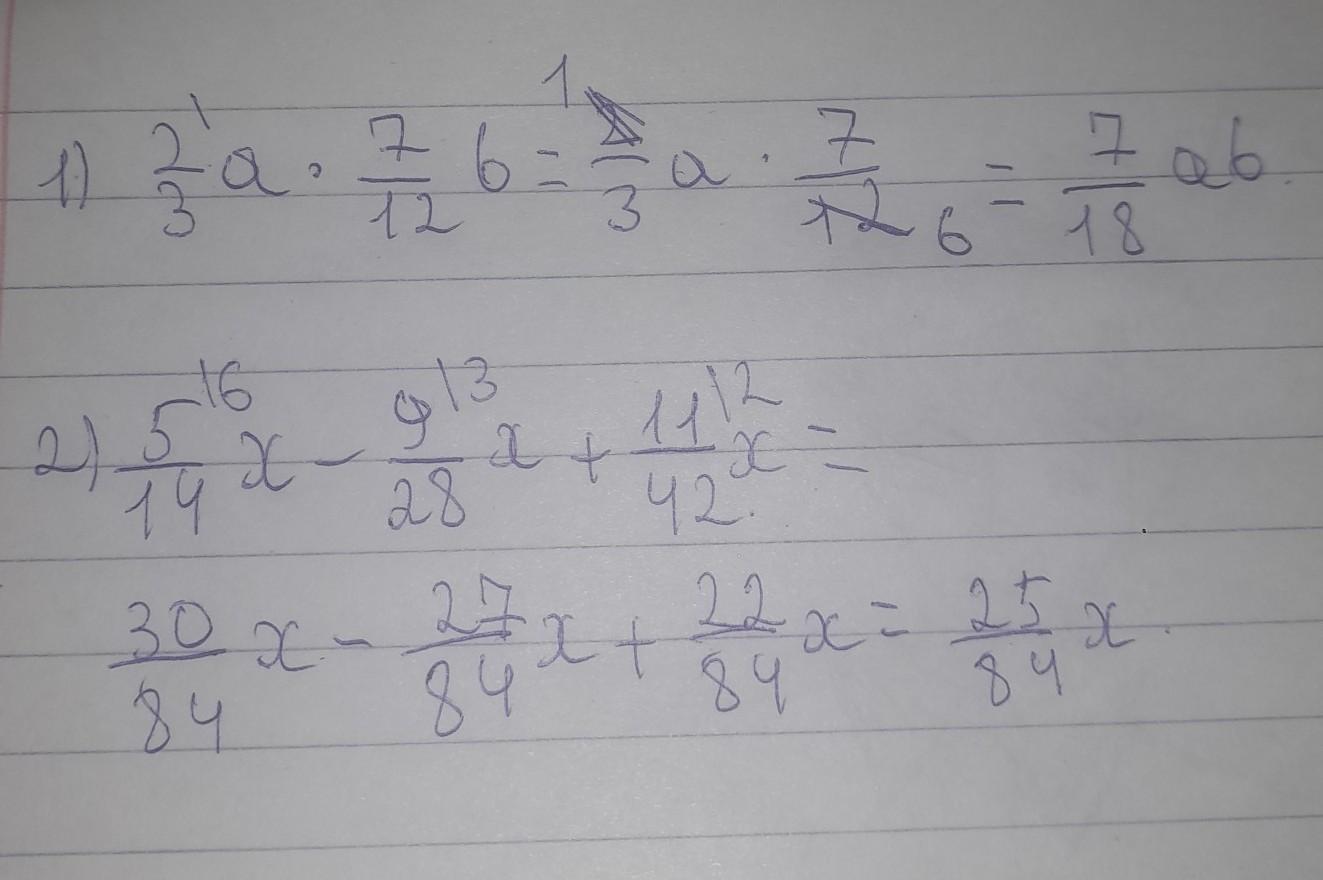 1) 2/3 a · 7/12 b = 1 2/3 a · 7/12 6 = 7/18 ab.
2) 5\6/14 x - 9\3/28 x + 11\2/42 x =
30/84 x - 27/84 x + 22/84 x = 25/84 x.